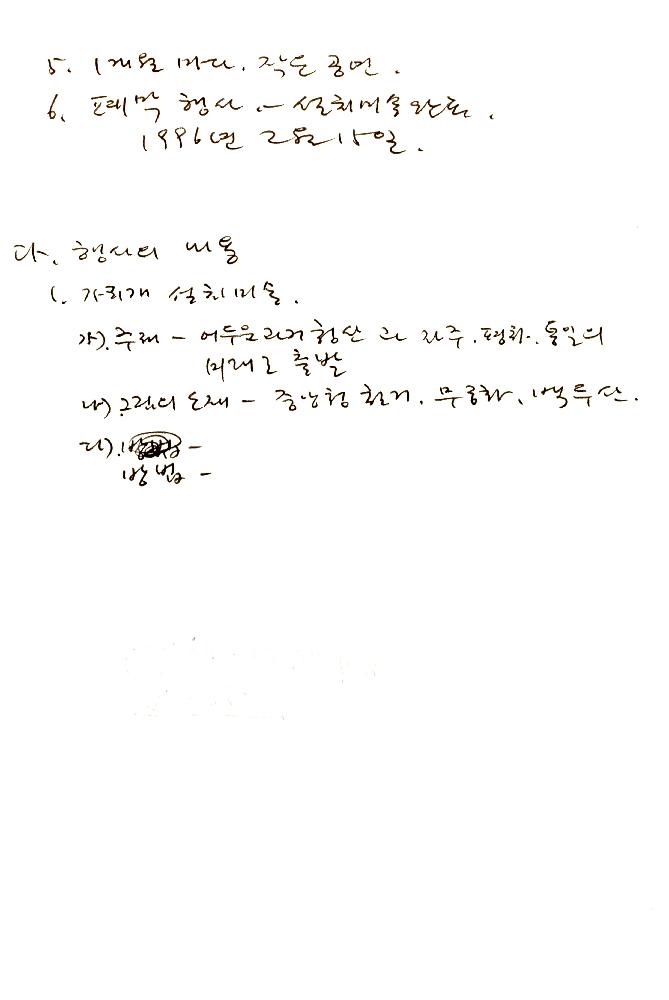 5. 1개월 마다. 작은 공연.
6. 폐막 행사 - 설치미술완료.
1996년 2월 15일.
다. 행사의 내용
1. 가리개 설치미술.
가). 주제 - 어두운과거청산 과 자주.평화.통일의
미래로 출발
나). 그림의 소재 - 중앙청 철거, 무궁화, 백두산.
다). 방법 -